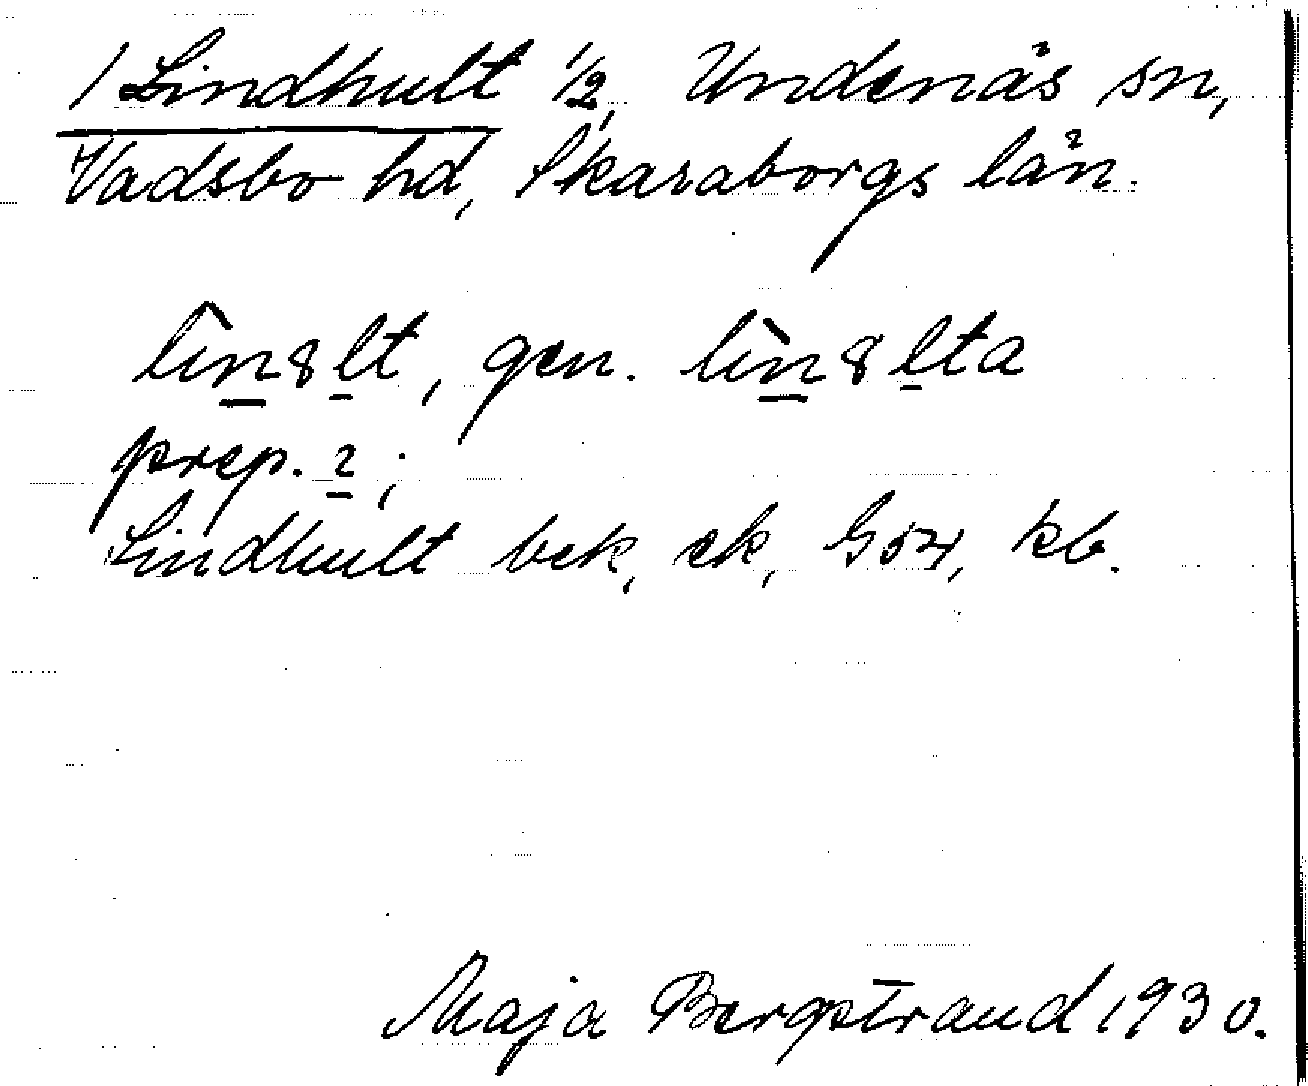 / Lindhult 1/2, Undenäs sn,
Vadsbo hd, Skaraborgs län.
lìn8lt, gen. lìn8lta
prep. 2;
Lindhult bek, ek, G54, kb.
Maja Bergstrand 1930.